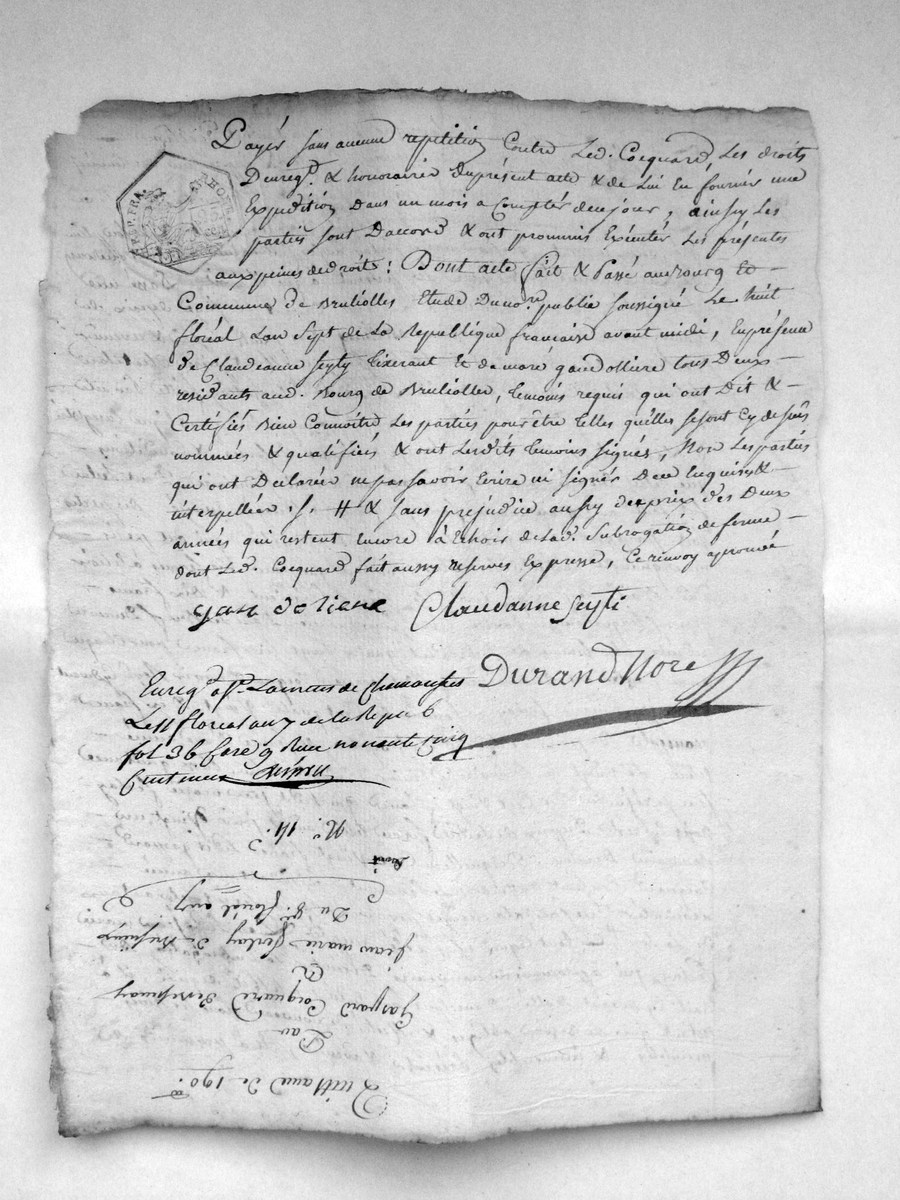 Payér sans aucune repetition Contre Led. Cocquard, Les droits
Denreg.t & honoraires Duprésent acte & de Lui En fournir une
Expedition Dans un mois a Comptér decejour, ainsy Les
partiés sont Daccord & ont prommis Exécutér Les présentes
auxpeines dedroits: Dont acte fait & Passé aubourg Et
Commune de Bruliolles Etude Duno.re publié soussigné Le huit
floréal Lan Sept de La Republique francaise avant midi, En présence
de Claudeanne Seyty tixerant Et de
tous Deux
residants aud. Bourg de Brulioller, temoins requis qui ont Dit &
Certifiés Bien Connoitre Les partiés pour être telles quelles se sont Cy dessus
nommées & qualifiés & ont Lesdits temoins signés, Non Les partiés
qui ont Déclarés ne pas savoir Ecrire ni signér Dece Enquises &
interpellées ./. # & sans prejudice aussy desprix des Deux
années qui restent Encore à Echoir de Lad. Subrogation de ferme
dont Led. Cocquard fait aussy reserves Expresse, Ce renvoy aprouvé
Claudanne Seyti
Durand Nore
Enreg.é a St. Laurens de Chamousset
Le 11 floreal an 7 de la Repu
fol 36 Case 9 Recu nonante Cinq
Centimes
N.o 14.
Du 8. floréal an 7
Jean marie ferlay de
A
Gaspard Cocquard
Par
Quittance de 190
REP. FRA.
RHONE